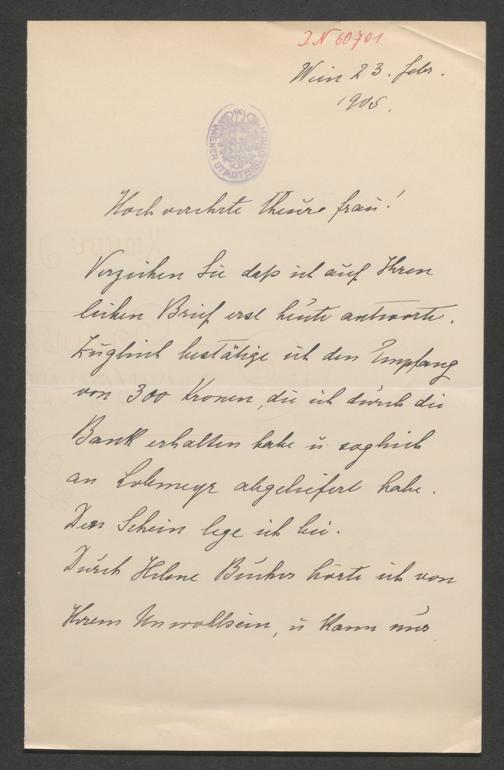 J.N. 60701
Wien 23. Febr.
1905.
WIENER STADTBIBLIOTHEK
Hoch verehrte theure Frau!
Verzeihen Sie daß ich auf Ihren
lieben Brief erst heute antworte.
Zugleich bestätige ich den Empfang
von 300 Kronen, die ich durch die
Bank erhalten habe u. sogleich
an Lobmeyr abgeliefert habe.
Den Schein lege ich bei.
Durch Helene Bucher hörte ich von
Ihrem Unwohlsein, u kann nur